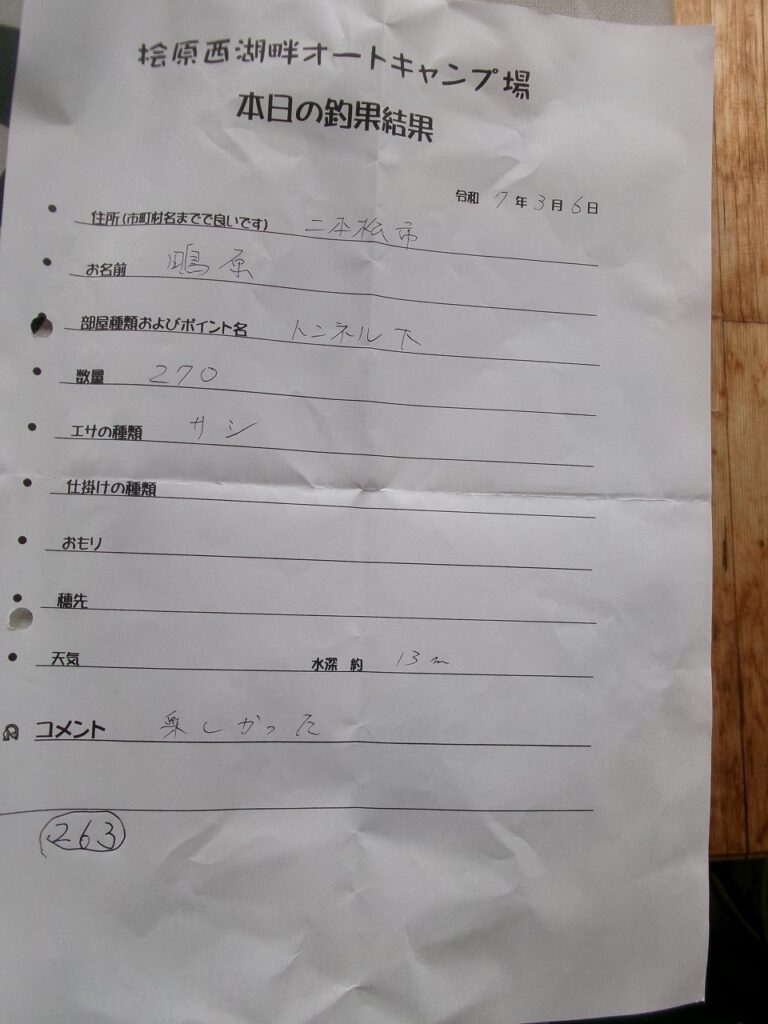 桧原西湖畔オートキャンプ場
本日の釣果結果
令和 7 年 3 月 6 日
住所(市町村名までで良いです) 二本松市
お名前 鴫原
部屋種類およびポイント名 トンネル下
数量 270
エサの種類 サシ
仕掛けの種類
おもり
穂先
天気 水深 約 13m
コメント 楽しかった
263